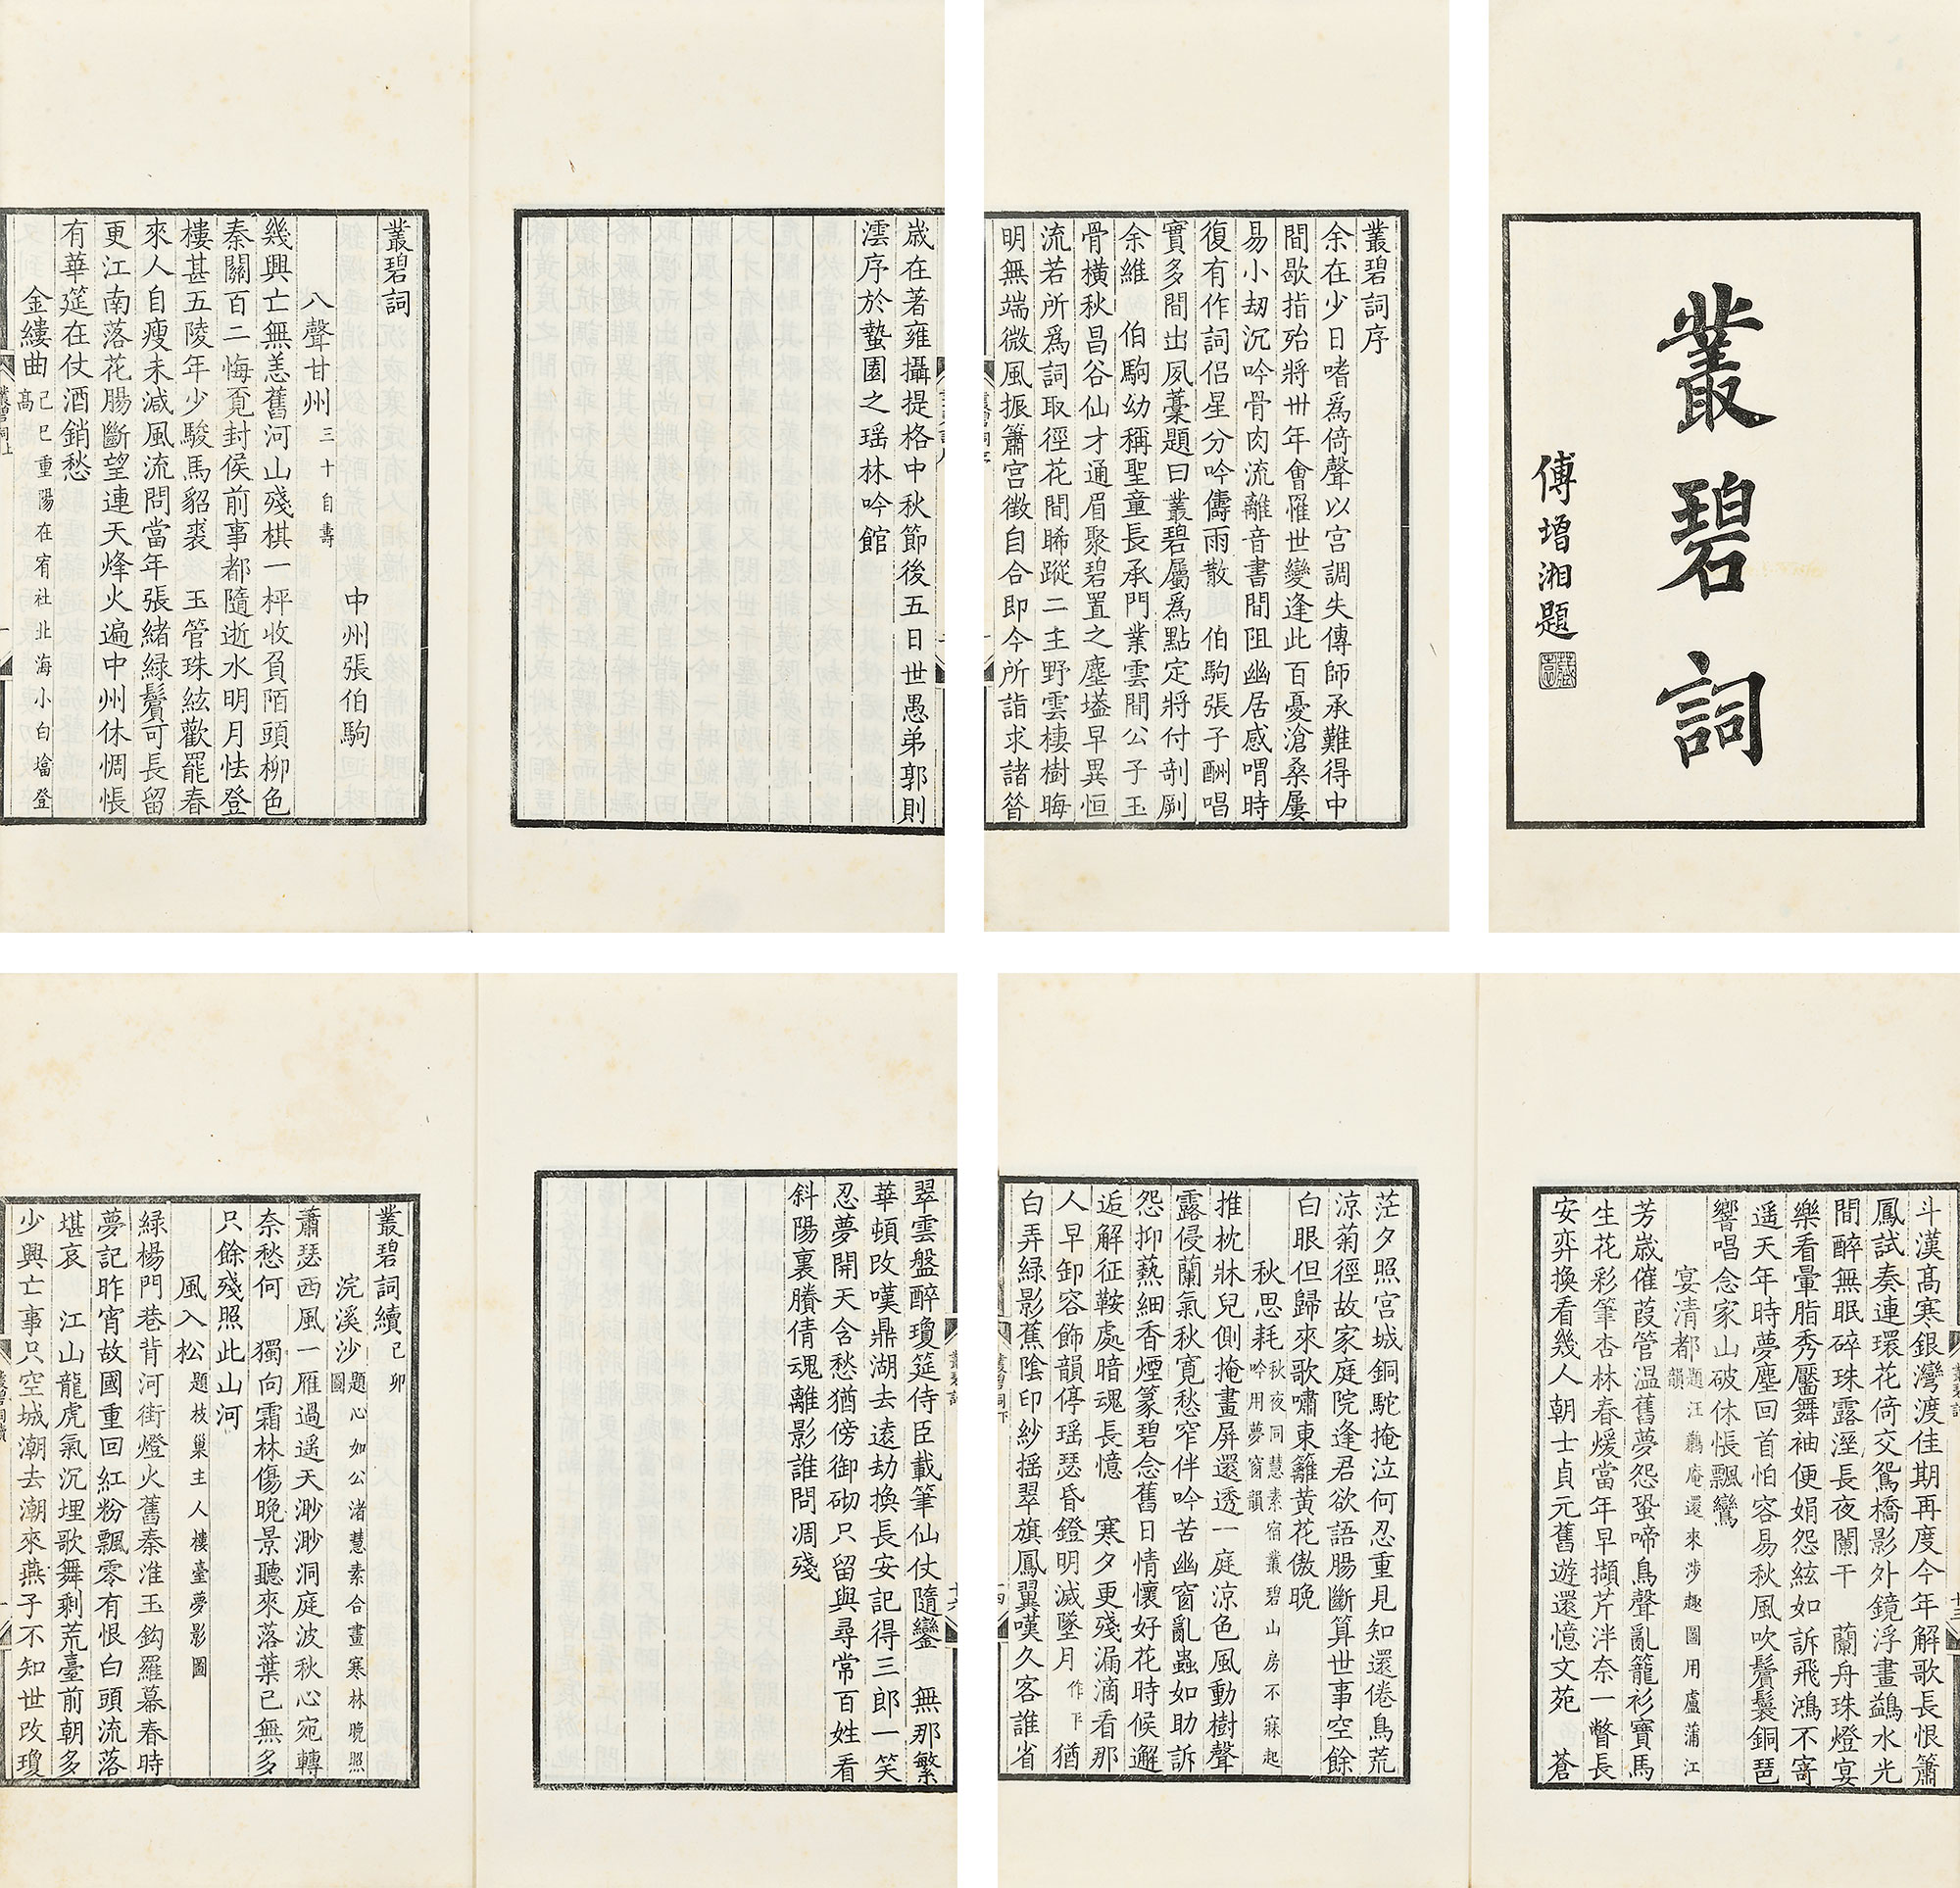 叢碧詞
傅增湘題
叢碧詞序
余在少日嗜爲倚聲以宫調失傳師承難得中
間歇指殆將卅年會罹世變逢此百憂滄桑屢
易小劫沉吟骨肉流離音書間阻幽居感喟時
復有作詞侣星分吟儔雨散 伯駒張子酬唱
實多間出夙藁題曰叢碧屬爲點定將付剞劂
余維 伯駒幼稱聖童長承門業雲間公子玉
骨橫秋昌谷仙才通眉聚碧置之塵壒早異恒
流若所爲詞取徑花間晞蹤二主野雲棲樹晦
明無端微風振簫宫徵自合即今所詣求諸曾
歲在著雍攝提格中秋節後五日世愚弟郭則
澐序於蟄園之瑶林吟館
叢碧詞
中州張伯駒
八聲甘州 三十自壽
幾興亡無恙舊河山殘棋一枰收負陌頭柳色
秦關百二悔覔封侯前事都隨逝水明月怯登
樓甚五陵年少駿馬貂裘 玉管珠絃歡罷春
來人自瘦未減風流問當年張緒綠鬢可長留
更江南落花腸斷望連天烽火遍中州休惆悵
有華筵在仗酒銷愁
金縷曲 己巳重陽在宥社北海小白墖登
高
叢碧詞上
斗漢高寒銀灣渡佳期再度今年解歌長恨簫
鳳試奏連環花倚交鴛橋影外鏡浮畫鷁水光
間醉無眠碎珠露溼長夜闌干 蘭舟珠燈宴
樂看暈脂秀靨舞袖便娟怨絃如訴飛鴻不寄
遥天年時夢塵回首怕容易秋風吹鬢鬟銅琶
響唱念家山破休悵飄鸞
宴清都 題汪鶼庵還來涉趣圖用盧蒲江
韻
芳歲催葭管温舊夢怨蛩啼鳥聲亂籠衫寶馬
生花彩筆杏林春煖當年早擷芹泮奈一瞥長
安弈換看幾人朝士貞元舊遊還憶文苑 蒼
茫夕照宫城銅駝掩泣何忍重見知還倦鳥荒
涼菊徑故家庭院逢君欲語腸斷算世事空餘
白眼但歸來歌嘯東籬黃花傲晚
秋思耗 秋夜同慧素宿叢碧山房不寐起
吟用夢窗韻
推枕牀兒側掩畫屏還透一庭涼色風動樹聲
露侵蘭氣秋寬愁窄伴吟苦幽窗亂蟲如助訴
怨抑爇細香煙篆碧念舊日情懷好花時候邂
逅解征鞍處暗魂長憶 寒夕更殘漏滴看那
人早卸容飾韻停瑶瑟昏鐙明滅墜月作平猶
白弄綠影蕉陰印紗摇翠旗鳳翼嘆久客誰省
叢碧詞下
翠雲盤醉瓊筵侍臣載筆仙仗隨鑾 無那繁
華頓改嘆鼎湖去遠劫換長安記得三郎一笑
忍夢開天含愁猶傍御砌只留與尋常百姓看
斜陽裏賸倩魂離影誰問凋殘
叢碧詞續 己卯
浣溪沙 題心如公渚慧素合畫寒林晚照
圖
蕭瑟西風一雁過遥天渺渺洞庭波秋心宛轉
奈愁何 獨向霜林傷晚景聽來落葉已無多
只餘殘照此山河
風入松 題枝巢主人樓臺夢影圖
綠楊門巷背河街燈火舊秦淮玉鈎羅幕春時
夢記昨宵故國重回紅粉飄零有恨白頭流落
堪哀 江山龍虎氣沉埋歌舞剩荒臺前朝多
少興亡事只空城潮去潮來燕子不知世改瓊
叢碧詞續